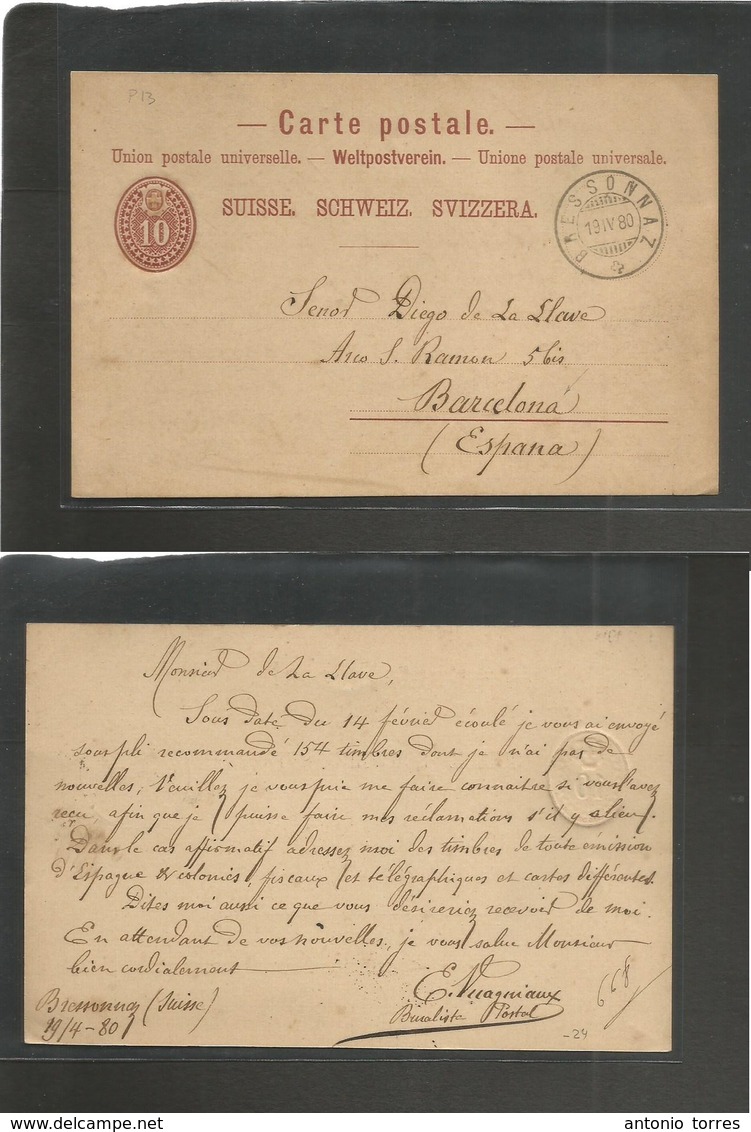 P 13
— Carte postale. —
Union postale universelle. — Weltpostverein. — Unione postale universale.
SUISSE. SCHWEIZ. SVIZZERA.
10
BRESSONNAZ
19 IV 80
Senor Diego de La Llave
Arco S. Ramon 5 bis
Barcelona
(Espana)
Monsieur de La Llave,
Sous date du 14 février écoulé je vous ai envoyé
sous pli recommandé 154 timbres dont je n'ai pas de
nouvelles; Veuillez je vous prie me faire connaitre si vous l'avez
recu, afin que je puisse faire mes réclamations s'il y a lieu.
Dans le cas affirmatif adressez moi des timbres de toute émission
d'Espagne & colonies, fiscaux et télégraphiques et cartes différentes.
Dites moi aussi ce que vous désireriez recevoir de moi.
En attendant de vos nouvelles, je vous salue Monsieur
bien cordialement
E. Vuagniaux
Buraliste Postal
Bressonnaz (Suisse)
19/4-80
668
-24
antonio torres